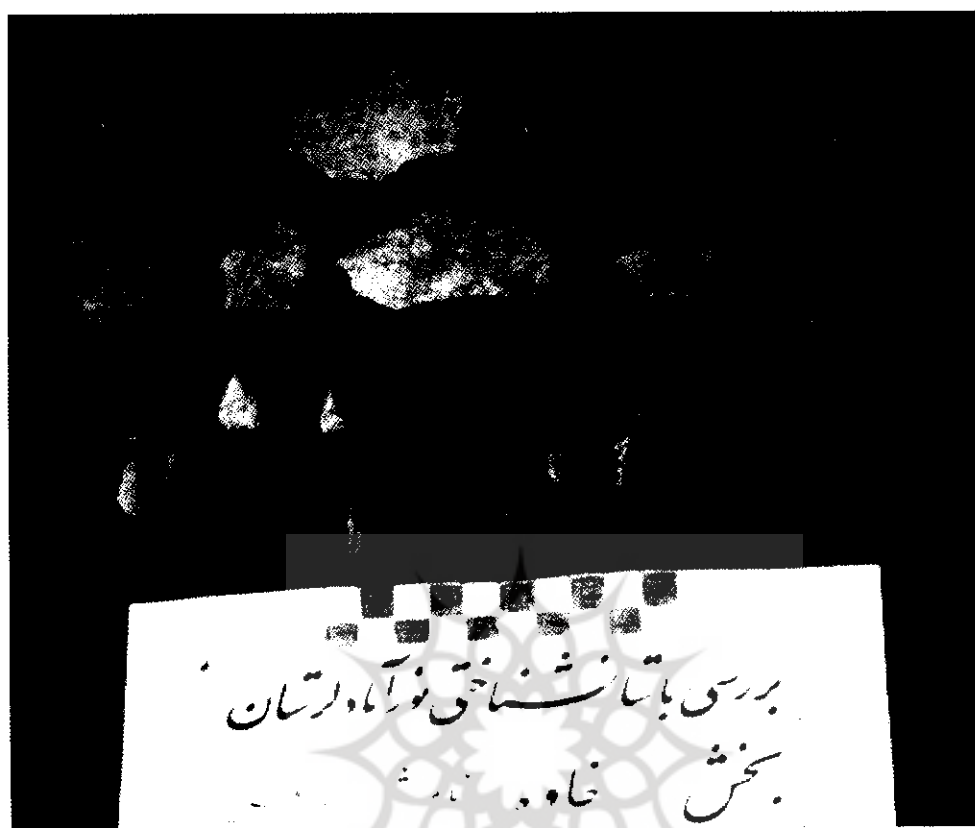 بررسی باستانشناختی نورآباد لرستان
بخش خاوه